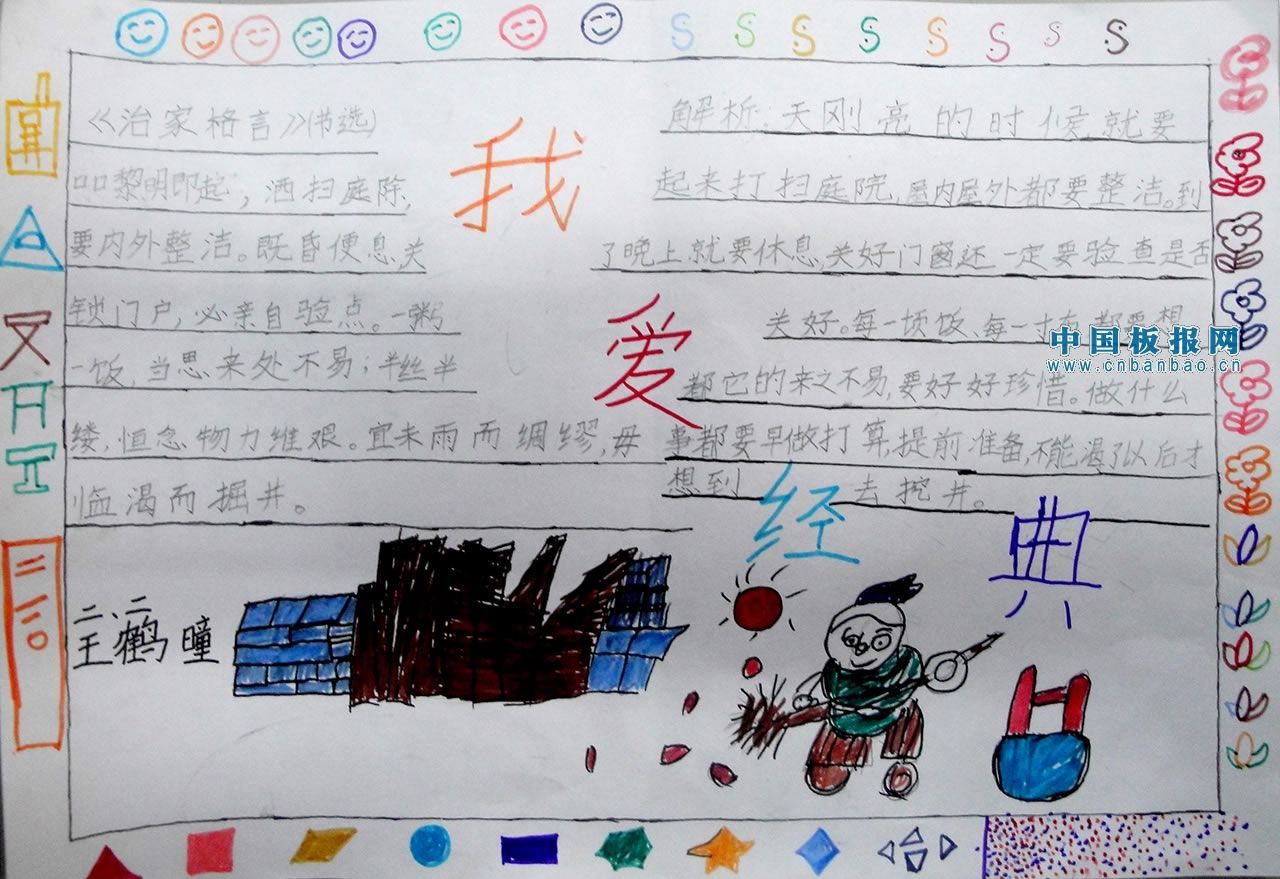 《治家格言》(节选)
黎明即起，洒扫庭除，
要内外整洁。既昏便息，关
锁门户，必亲自验点。一粥
一饭，当思来处不易，半丝半
缕，恒念物力维艰。宜未雨而绸缪，毋
临渴而掘井。
我
爱
经
典
解析：天刚亮的时候就要
起来打扫庭院，屋内屋外都要整洁。到
了晚上就要休息，关好门窗还一定要验查是否
关好。每一顿饭、每一
都它的来之不易，要好好珍惜。做什么
事都要早做打算，提前准备，不能渴了以后才
想到去挖井。
二、二
王鹤曈
中国板报网
www.cnbanbao.cn